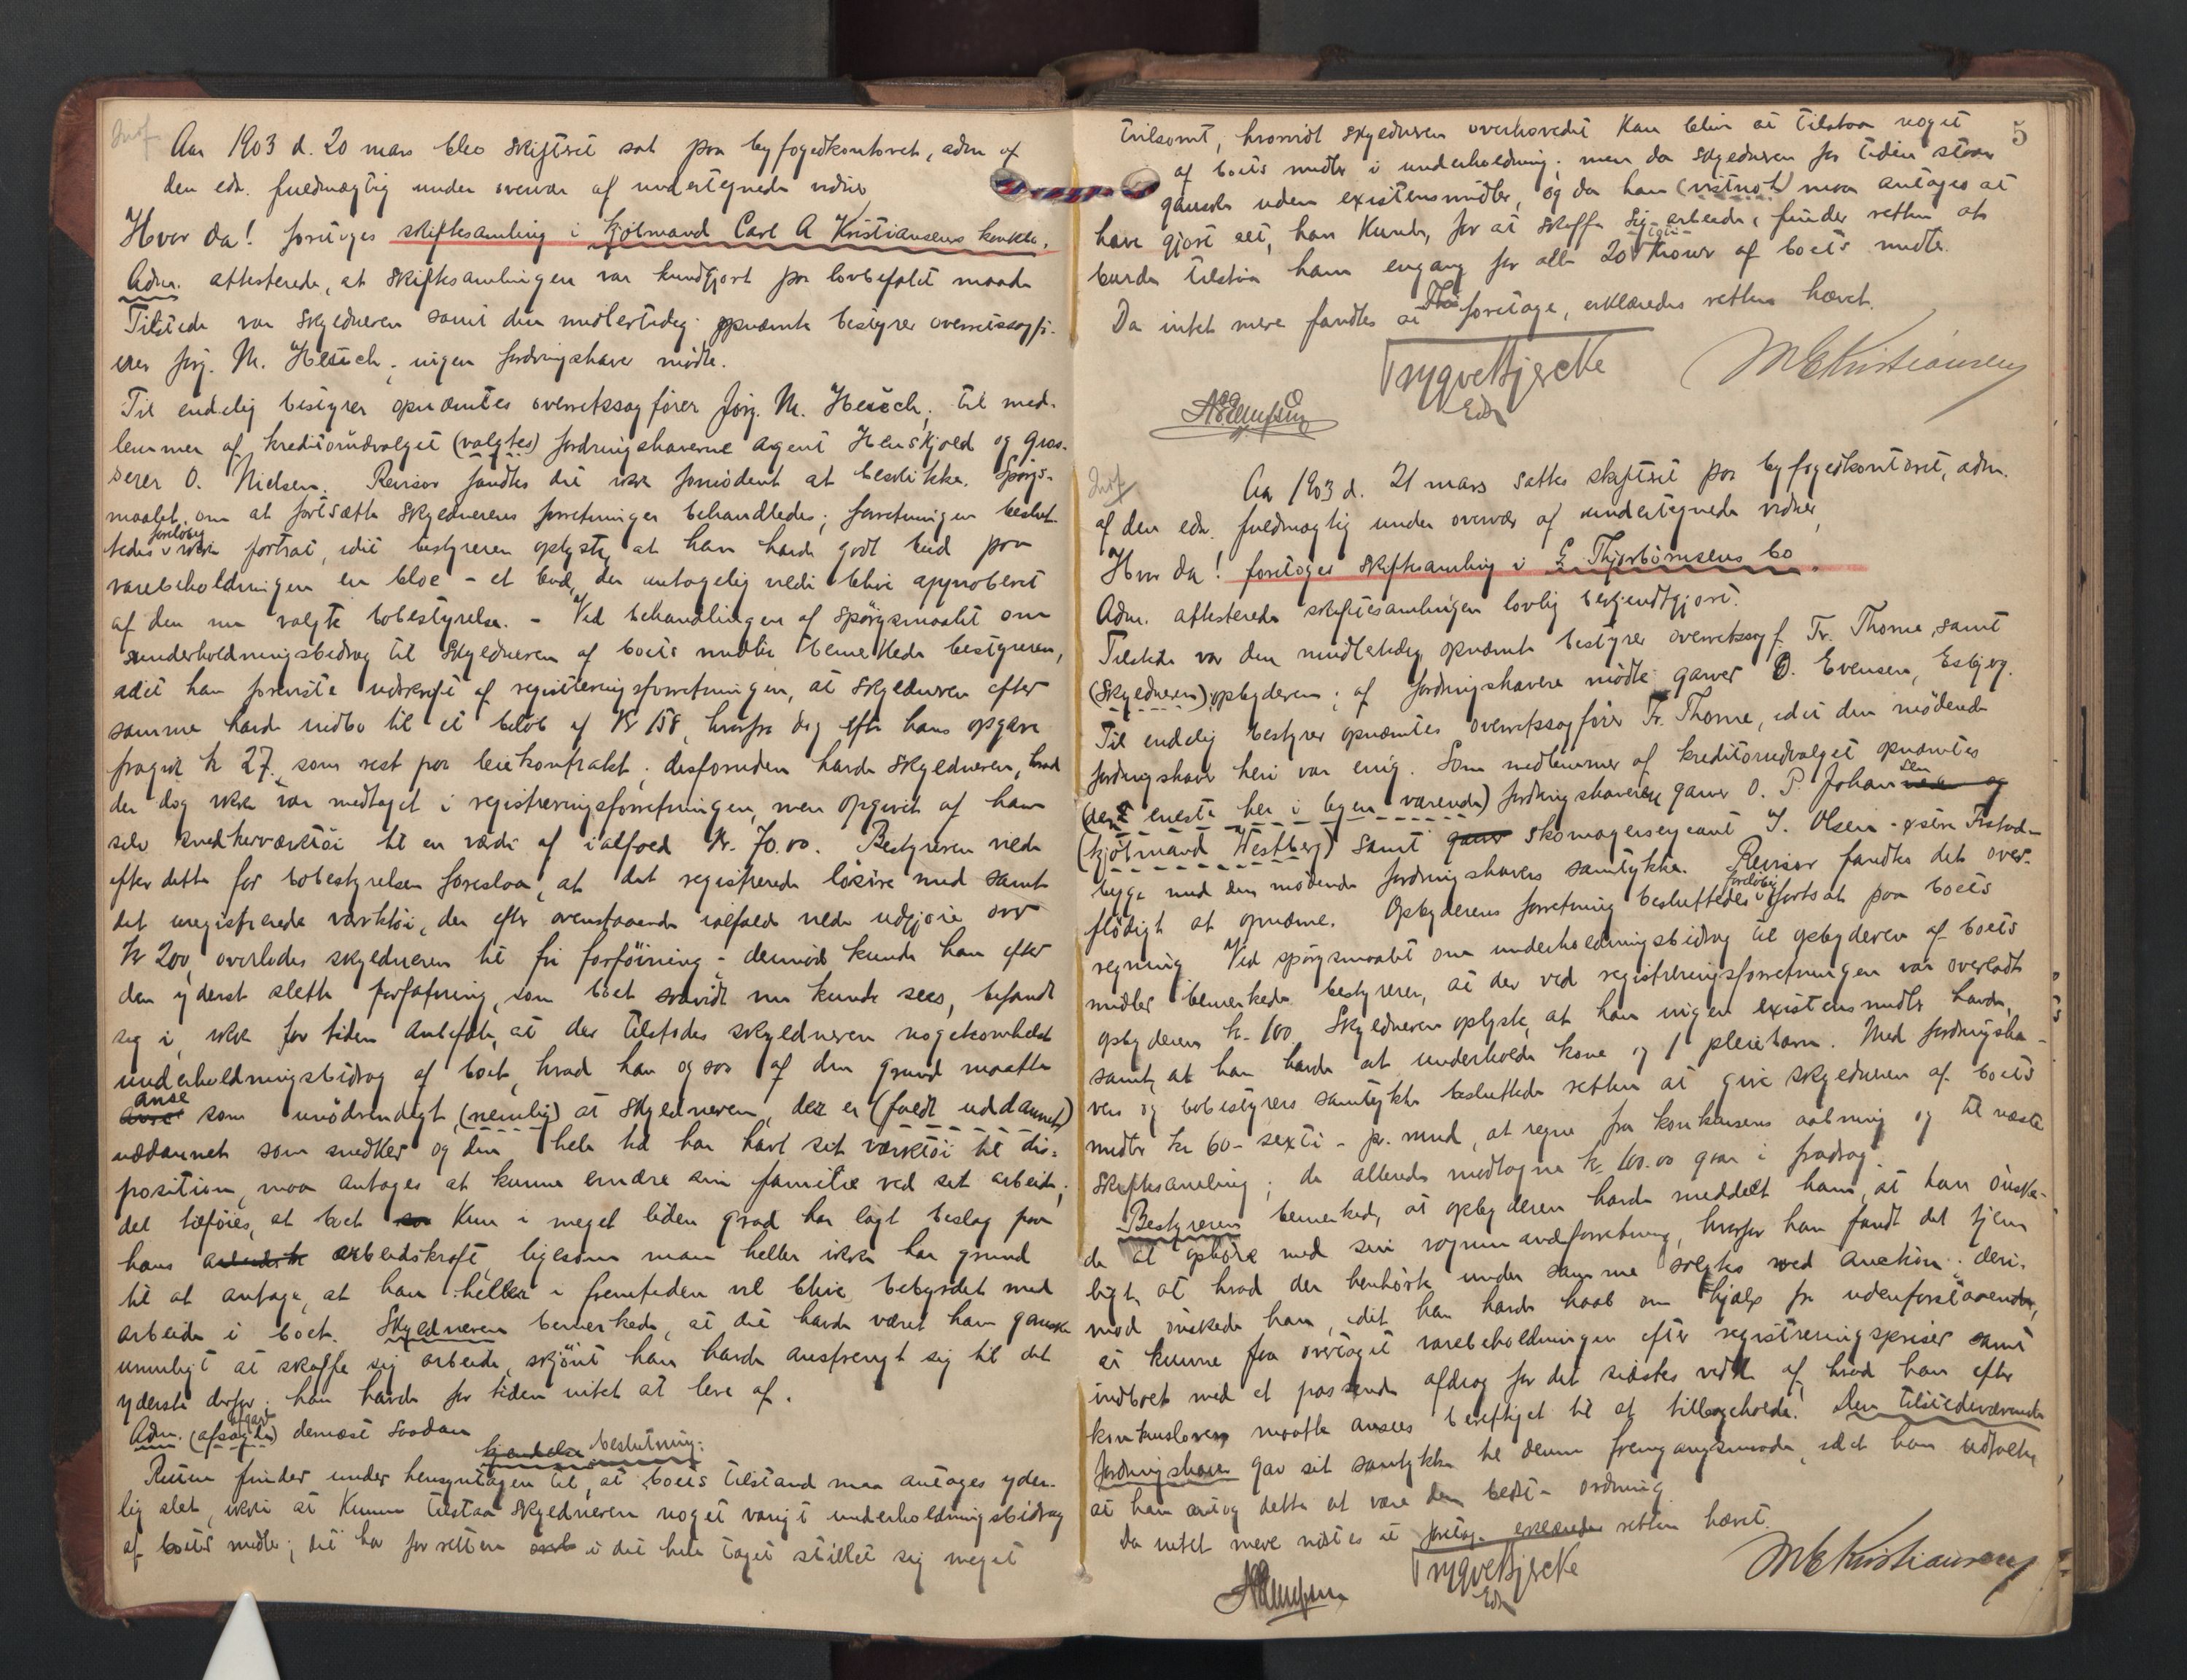 Aar 1903 d. 20 mars blev skifteret sat paa byfogedkontoret, adm af
den edv. fuldmægtig under overvær af undertegnede vidner
Hvor da! foretoges skiftesamling i Kjøbmand Carl A Kristiansens konkbo.
Adm. attesterede, at skiftesamlingen var kundgjort paa lovbefalet maade
Tilstede var skyldneren samt den midlertidig opnævnte bestyrer overretssagfø-
rer Jørg. M. Heüch; ingen fordringshaver mødte.
Til endelig bestyrer opnævntes overretssagfører Jørg. M. Heüch; til med-
lemmer af kreditorudvalget (valgtes) fordringshaverne agent Henskjold og gros-
serer O. Nielsen. Revisor fandtes det ikke fornødent at beskikke. Spørgs-
maalet om at fortsætte skyldnerens forretninger behandledes; forretningen beslut-
tedes foreløbig ikke fortsat, idet bestyreren oplyste, at han havde godt bud paa
varebeholdningen en bloc - et bud, der antagelig vilde blive approberet
af den nu valgte bobestyrelse. - Ved behandlingen af spørgsmaalet om
underholdningsbidrag til skyldneren af boets midler bemerkede bestyreren,
idet han foreviste udskrift af registreringsforretningen, at skyldneren efter
samme havde indbo til et beløb af Kr 158, hvorfra dog efter hans opgave
fragik kr 27, som rest paa leiekontrakt; desforuden havde skyldneren, hvad
der dog ikke var medtaget i registreringsforretningen, men opgivet af ham
selv snedkerværktøi til en værdi af ialfald Kr. 70.00. Bestyreren vilde
efter dette for bobestyrelsen foreslaa, at det registrerede løsøre med samt
det uregistrerede værktøi, der efter ovenstaaende ialfald vilde udgjøre over
kr 200, overlodes skyldneren til fri forføining; derimod kunde han efter
den yderst slette forfatning, som boet saavidt nu kunde sees, befandt
sig i, ikke for tiden anbefale, at der tilstodes skyldneren nogetsomhelst
underholdningsbidrag af boet, hvad han ogsaa af den grund maatte
anse som unødvendigt, (nemlig) at skyldneren, der er (fuldt uddannet)
uddannet som snedker og den hele tid har havt sit værktøi til dis-
position, maa antages at kunne ernære sin familie ved sit arbeide;
det tilføies, at boet kun i meget liden grad har lagt beslag paa
hans arbeidskraft, ligesom man heller ikke har grund
til at antage, at han heller i fremtiden vil blive bebyrdet med
arbeide i boet. Skyldneren bemerkede, at det havde været ham ganske
umuligt at skaffe sig arbeide, skjønt han havde anstrengt sig til det
yderste derfor; han havde for tiden intet at leve af.
Adm. (afsagde) afgav dernæst saadan
kjendelse beslutning:
Retten finder under hensyntagen til, at boets tilstand maa antages yder-
lig slet, ikke at kunne tilstaa skyldneren noget varigt underholdningsbidrag
af boets midler; det har for retten i det hele taget stillet sig meget
5
tvilsomt, hvorvidt skyldneren overhovedet kan blive at tilstaa noget
af boets midler i underholdning; men da skyldneren for tiden staar
ganske uden existensmidler, og da han (vistnok) maa antages at
have gjort alt, han kunde, for at skaffe sig arbeide, finder retten at
burde tilstaa ham engang for alle 20 kroner af boets midler.
Da intet mere fandtes at foretage, erklæredes retten hævet.
Trygve Hjercke
Edv
M E Kristiansen
Aar 1903 d. 21 mars sattes skifteret paa byfogedkontoret, adm.
af den edv. fuldmægtig under overvær af undertegnede vidner,
Hvor da! foretoges skiftesamling i G. Thjorbørnsens bo.
Adm. attesterede skiftesamlingen lovlig bekjendtgjort.
Tilstede var den midlertidig opnævnte bestyrer overretssagf. Fr. Thorne, samt
(skyldneren) opbyderen; af fordringshavere mødte garver O. Evensen, Esbjerg.
Til endelig bestyrer opnævntes overretssagfører Fr. Thorne, idet den mødende
fordringshaver heri var enig. Som medlemmer af kreditorudvalget opnævntes
(den eneste her i byen værende) fordringshaveren garver O. P. Johansen og
(kjøbmand Westberg) samt garver skomagersergeant I. Olsen
begge med den mødende fordringshavers samtykke. Revisor fandtes det over-
flødigt at opnævne. Opbyderens forretning besluttedes foreløbig fortsat paa boets
regning. Ved spørgsmaalet om underholdningsbidrag til opbyderen af boets
midler bemerkede bestyreren, at der ved registreringsforretningen var overladt
opbyderen kr. 100. Skyldneren oplyste, at han ingen existensmidler havde,
samt, at han havde at underholde kone og 1 pleiebarn. Med fordringsha-
vers og bobestyrers samtykke besluttede retten at give skyldneren af boets
midler kr 60 - sexti - pr. mnd, at regne fra konkursens aabning og til næste
skiftesamling; de allerede modtagne kr. 100.00 gaar i fradrag.
Bestyreren bemerkede, at opbyderen havde meddelt ham, at han ønske-
de at ophøre med sin forretning, hvorfor han fandt det tjen-
ligt, at hvad der henhørte under samme solgtes ved auktion; deri-
mod ønskede han, idet han havde haab om hjælp fra udenforstaaende,
at kunne faa overtaget varebeholdningen efter registreringspriser samt
indboet med et passende afdrag for det sidstes vedk. af, hvad han efter
konkursloven maatte ansees berettiget til at tilbageholde. Den tilstedeværende
fordringshaver gav sit samtykke til denne fremgangsmaade, idet han udtalte,
at han antog dette at være den bedste ordning.
Da intet mere vistes at foretage erklæredes retten hævet.
Trygve Hjercke
Edv
M E Kristiansen